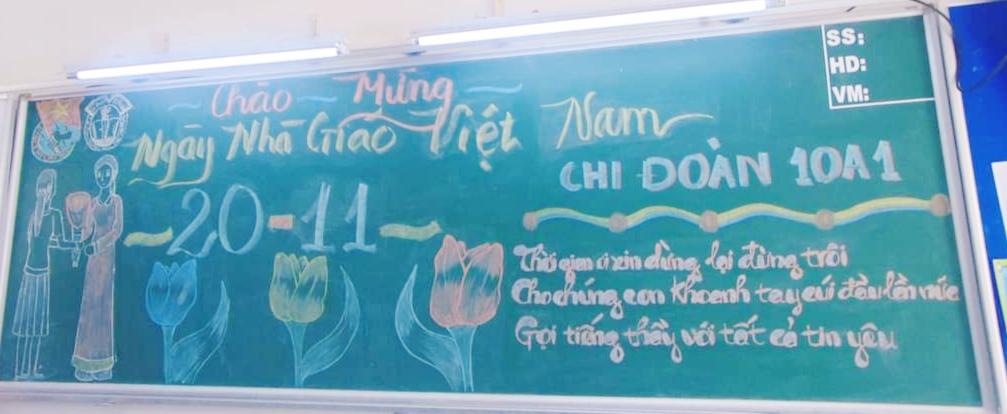 Chào Mừng
Ngày Nhà Giáo Việt Nam
20-11
SS:
HD:
VM:
CHI ĐOÀN 10A1
Thời gian ơi xin dừng lại đừng trôi
Cho chúng con khoanh tay cúi đầu lần nữa
Gọi tiếng thầy với tất cả tin yêu